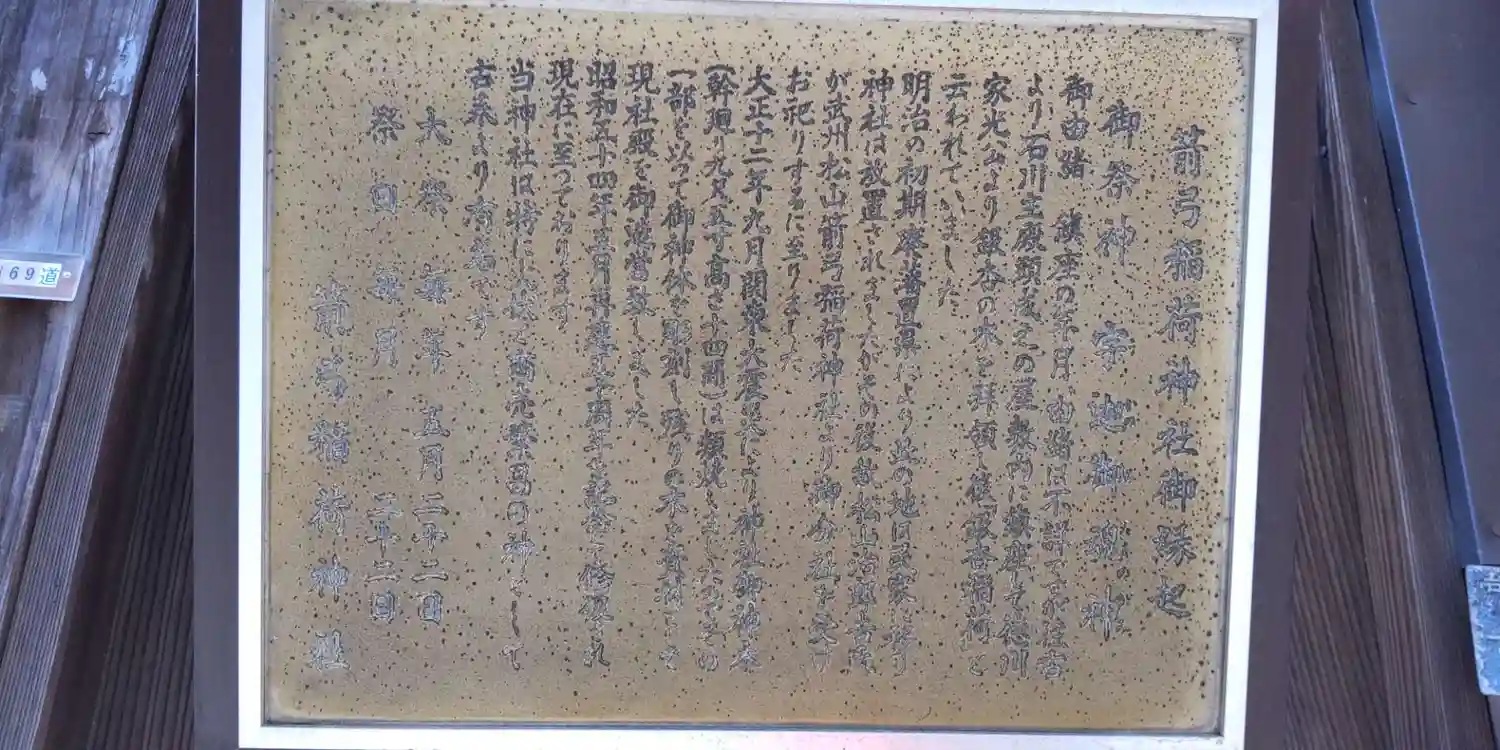 箭弓稲荷神社御縁起
御祭神 宇迦御魂神
御由緒 鎮座の年月、由緒は不詳ですが往古
より石川主殿頭後之の屋敷内に鎮座して徳川
家光公より銀杏の木を拝領し後銀杏稲荷と
云われていました
明治の初期 廃藩置県により此の地は
神社は放置されましたがその後故松山治郎
が武州松山箭弓稲荷神社より御分社を受け
お祀りするに至りました
大正十二年九月関東大震災により神社御神木
(幹廻り九尺五寸高さ十四間)は類焼しましたがその
一部を以って御神体を彫刻し残りの木を
現社殿を御造営致しました
昭和五十四年五月再建五十周年を記念し修復され
現在に至っております
当神社は特に火伏と商売繁昌の神として
古来より有名です
大祭 毎年 五月二十二日
祭日 毎月 二十二日
箭弓稲荷神社
69道